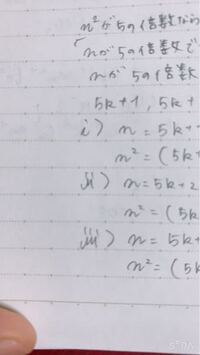 n²が5の倍数なら
「nが5の倍数で
nが5の倍数
5k+1, 5k+
i) n = 5k+
n² = (5k+
ii) n = 5k+2
n² = (5k
iii) n = 5k+
n² = (5k